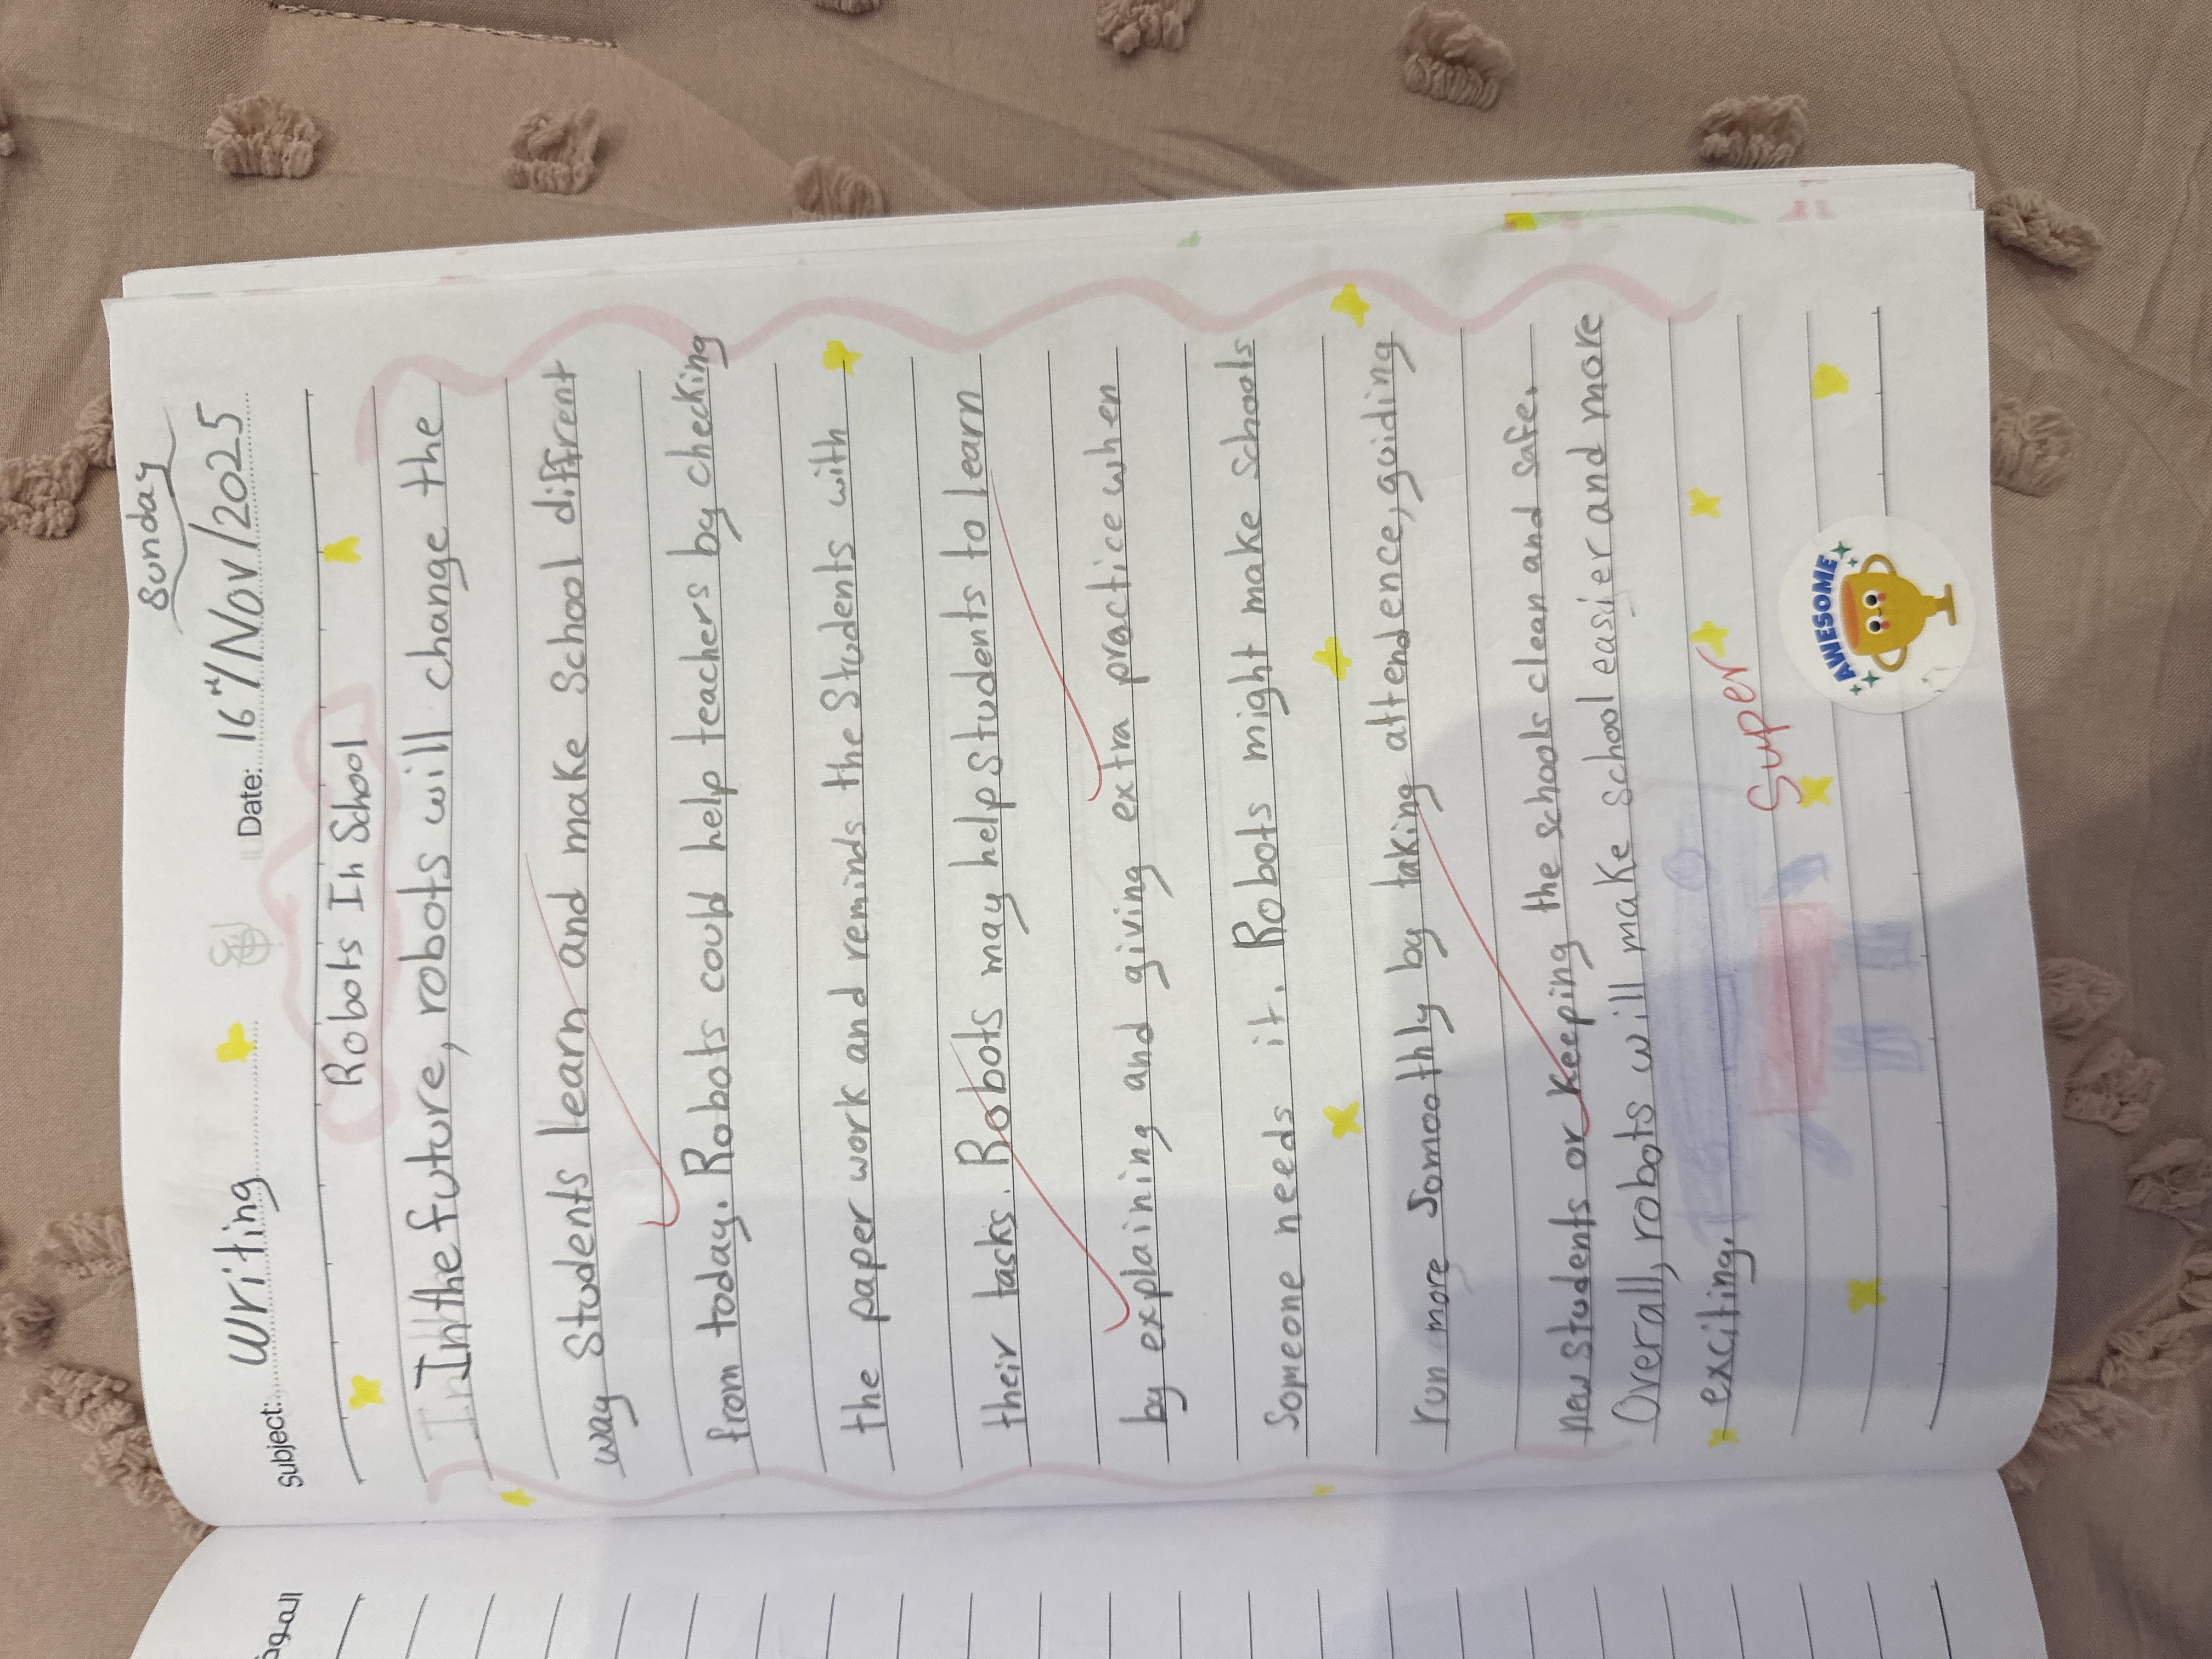 Sunday
Subject: Writing Date: 16th/Nov/2025
Robots In School
In the future, robots will change the
way Students learn and make School diffrent
from today. Robots could help teachers by checking
the paper work and reminds the Students with
their tasks. Robots may help Students to learn
by explaining and giving extra practice when
Someone needs it. Robots might make Schools
run more Smoothly by taking attendence, guiding
new Students or keeping the schools clean and safe.
Overall, robots will make school easier and more
exciting.
Super
AWESOME